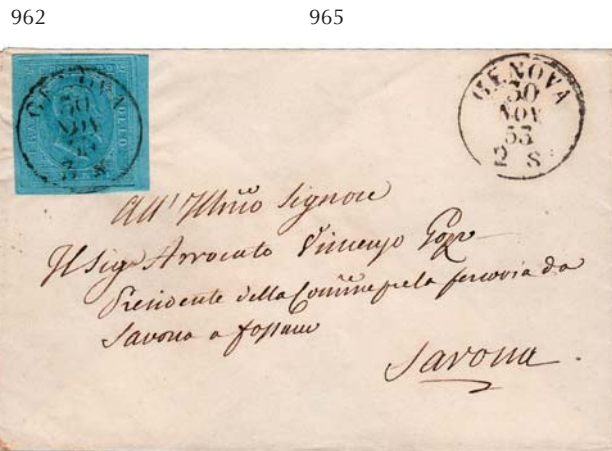 962 965
GENOVA
30
NOV
53
2 S
GENOVA
30
NOV
53
2 S
All' Illmo Signore
Il Sigr Avvocato Vincenzo
Presidente della Comme per la ferrovia da
Savona a Fossano
Savona.